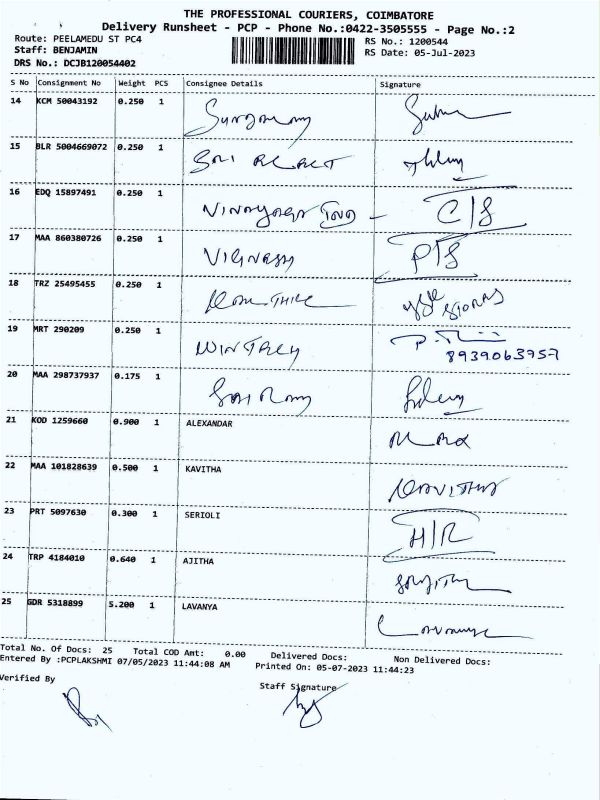 THE PROFESSIONAL COURIERS, COIMBATORE
Delivery Runsheet - PCP - Phone No.:0422-3505555 - Page No.:2
Route: PEELAMEDU ST PC4 RS No.: 1200544
Staff: BENJAMIN RS Date: 05-Jul-2023
DRS No.: DCJB120054402
S No Consignment No Weight PCS Consignee Details Signature
14 KCM 50043192 0.250 1
15 BLR 5004669072 0.250 1 SRI
16 EDQ 15897491 0.250 1 C/S
17 MAA 860380726 0.250 1 VIGNESH P/S
18 TRZ 25495455 0.250 1 STORES
19 MRT 290209 0.250 1
8939063957
20 MAA 298737937 0.175 1
21 KOD 1259660 0.900 1 ALEXANDAR
22 MAA 101828639 0.500 1 KAVITHA KAVITHA
23 PRT 5097630 0.300 1 SERIOLI H/R
24 TRP 4184010 0.640 1 AJITHA
25 GDR 5318899 5.200 1 LAVANYA
Total No. Of Docs: 25 Total COD Amt: 0.00 Delivered Docs: Non Delivered Docs:
Entered By :PCPLAKSHMI 07/05/2023 11:44:08 AM Printed On: 05-07-2023 11:44:23
Verified By
Staff Signature